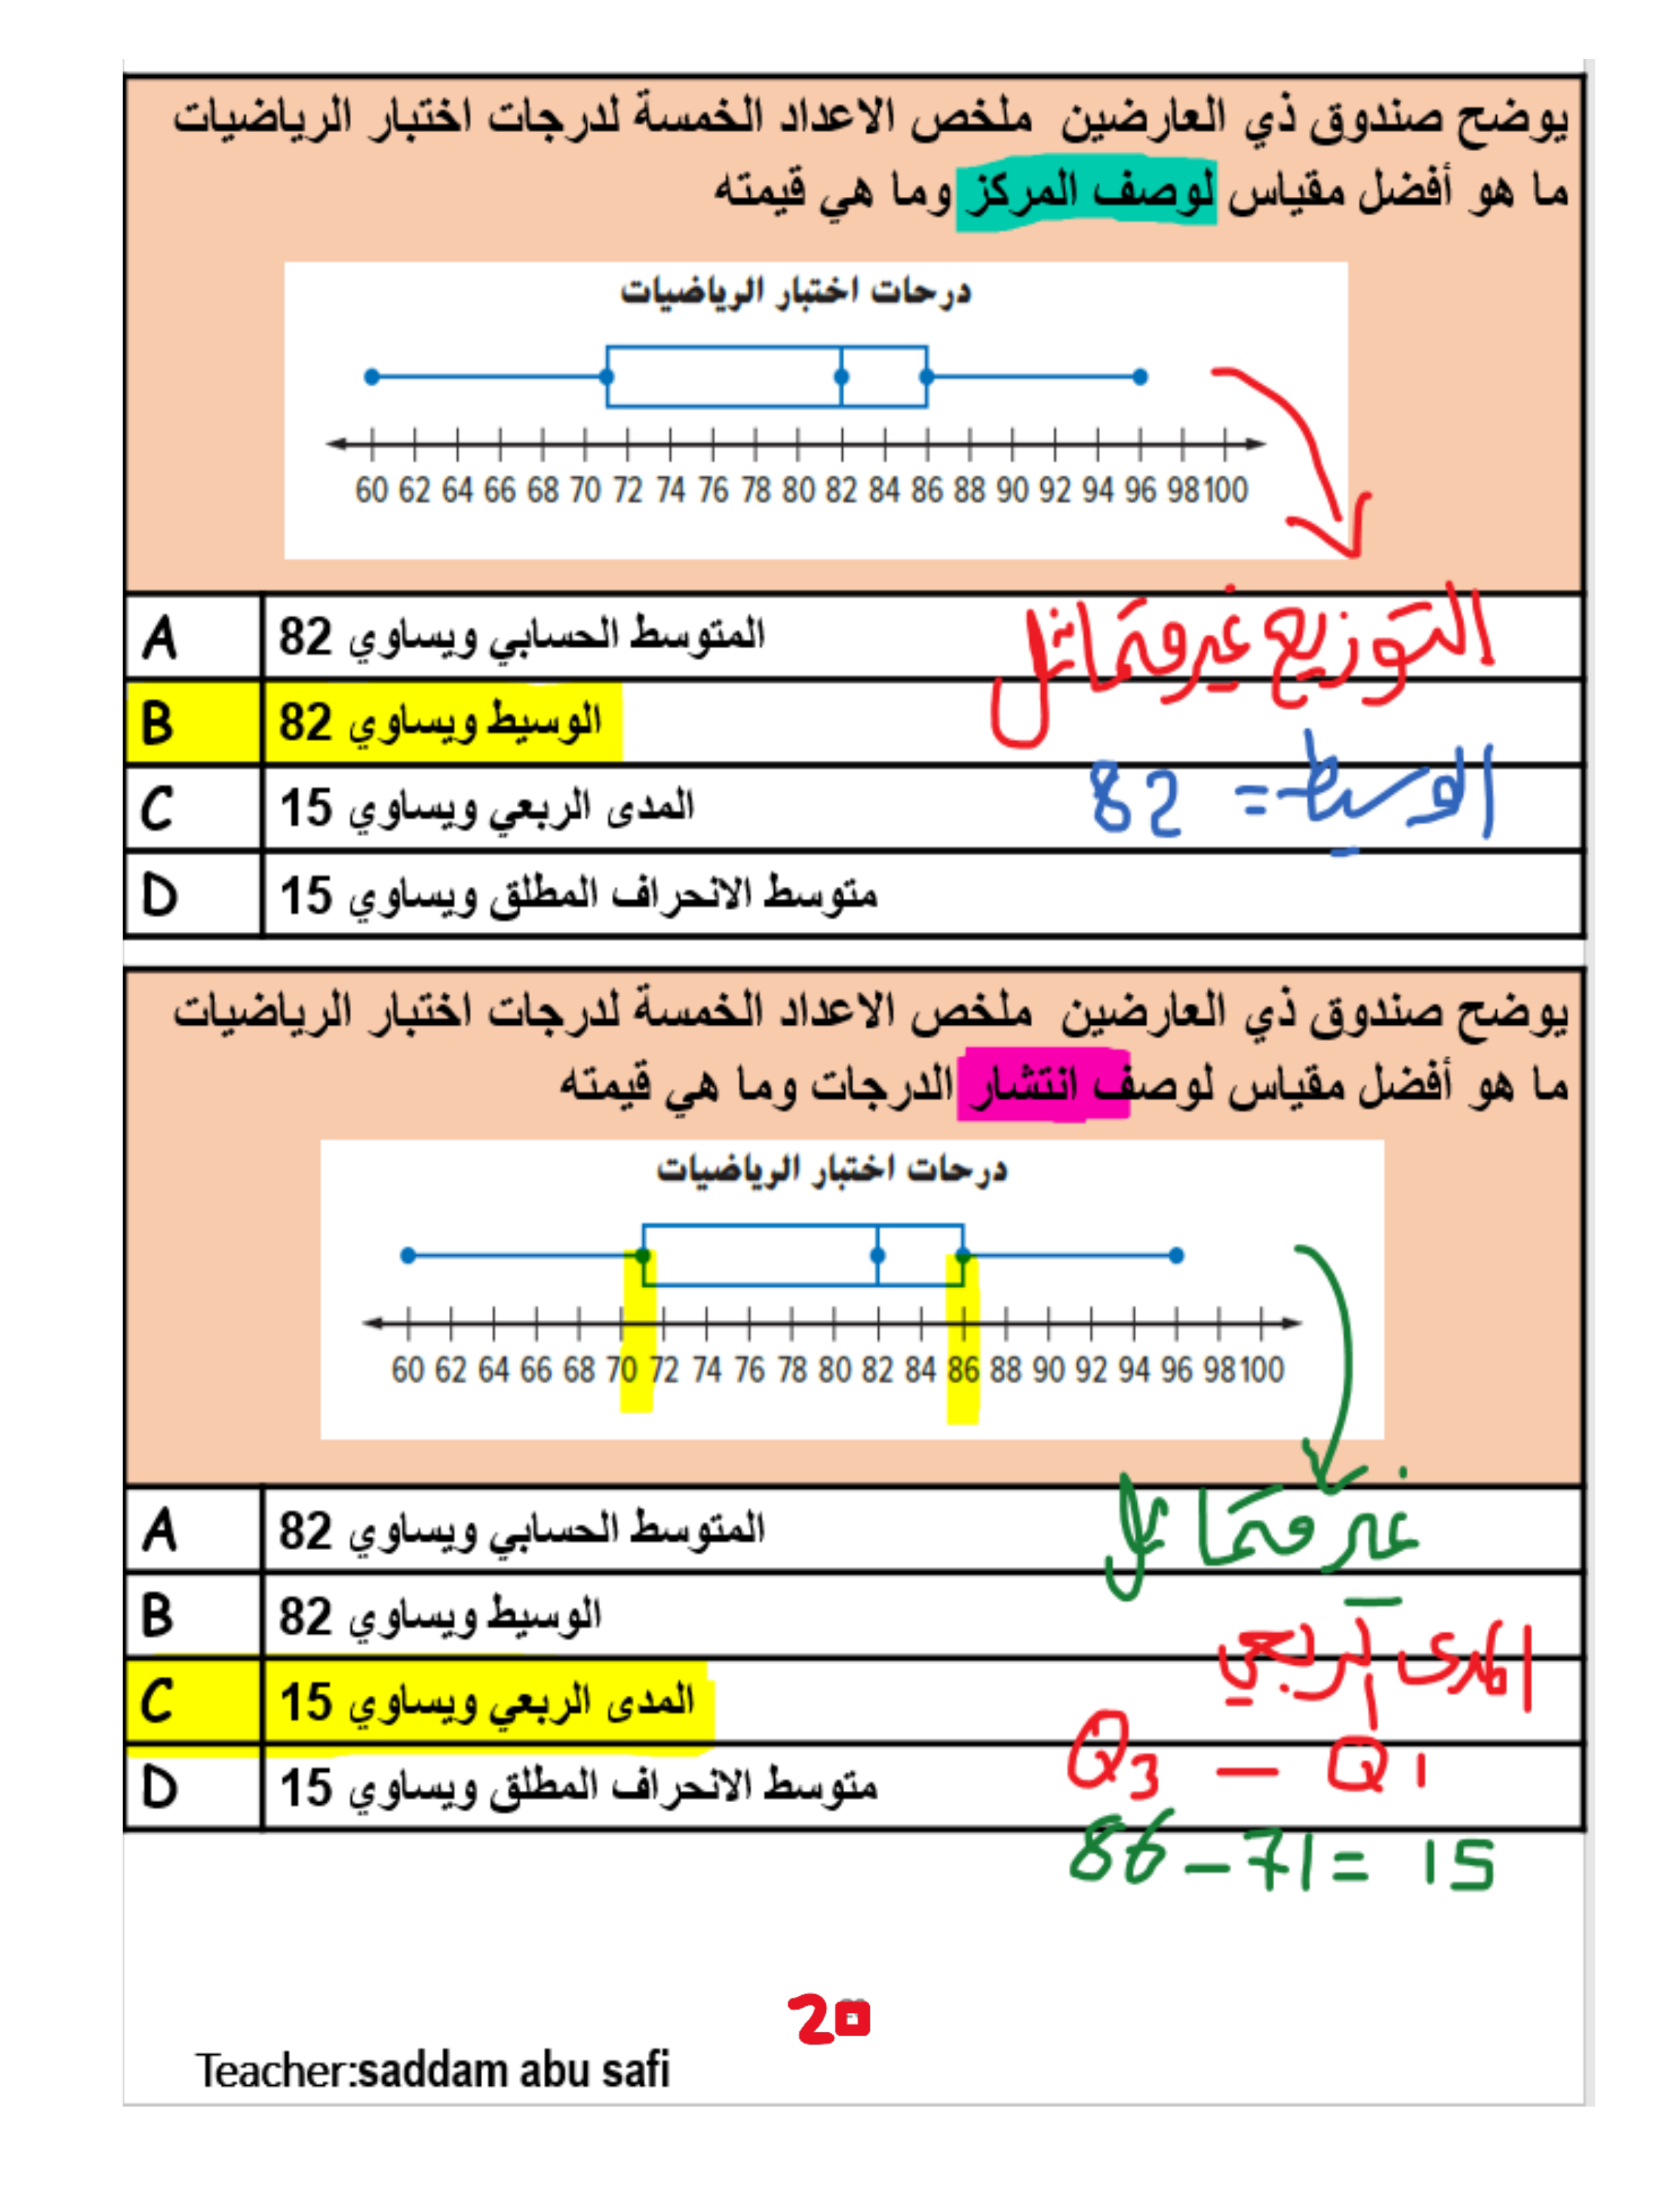 يوضح صندوق ذي العارضين ملخص الاعداد الخمسة لدرجات اختبار الرياضيات
ما هو أفضل مقياس لوصف المركز وما هي قيمته
درجات اختبار الرياضيات
60 62 64 66 68 70 72 74 76 78 80 82 84 86 88 90 92 94 96 98 100
A المتوسط الحسابي ويساوي 82
التوزيع غير متماثل
B الوسيط ويساوي 82
الوسيط = 82
C المدى الربعي ويساوي 15
D متوسط الانحراف المطلق ويساوي 15
يوضح صندوق ذي العارضين ملخص الاعداد الخمسة لدرجات اختبار الرياضيات
ما هو أفضل مقياس لوصف انتشار الدرجات وما هي قيمته
درجات اختبار الرياضيات
60 62 64 66 68 70 72 74 76 78 80 82 84 86 88 90 92 94 96 98 100
A المتوسط الحسابي ويساوي 82
غير متماثل
B الوسيط ويساوي 82
المدى الربعي
C المدى الربعي ويساوي 15
Q3 – Q1
D متوسط الانحراف المطلق ويساوي 15
86 – 71 = 15
20
Teacher:saddam abu safi